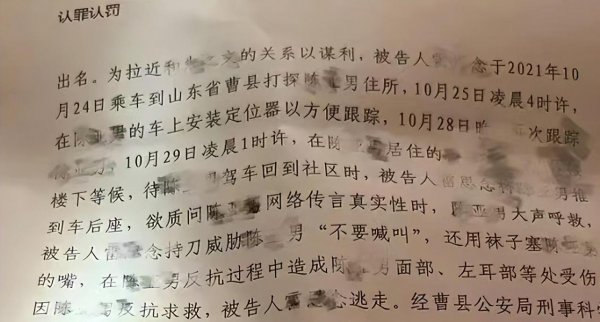 认罪认罚
出名。为拉近和 文的关系以谋利，被告人 念于2021年10
月24日乘车到山东省曹县打探陈 男住所，10月25日凌晨4时许，
在 的车上安装定位器以方便跟踪，10月28日 次跟踪
10月29日凌晨1时许，在陈 居住的
楼下等候，待陈 驾车回到社区时，被告人雷 男推
到车后座，欲质问陈 网络传言真实性时， 男大声呼救，
被告人雷 念持刀威胁陈 男“不要喊叫”，还用袜子塞陈
的嘴，在陈 男反抗过程中造成陈 男面部、左耳部等处受伤
因陈 男反抗求救，被告人雷 念逃走。经曹县公安局刑事科